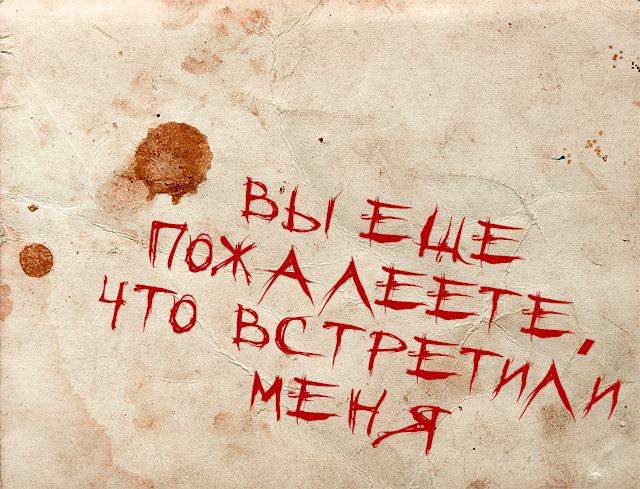 ВЫ ЕЩЕ
ПОЖАЛЕЕТЕ,
ЧТО ВСТРЕТИЛИ
МЕНЯ